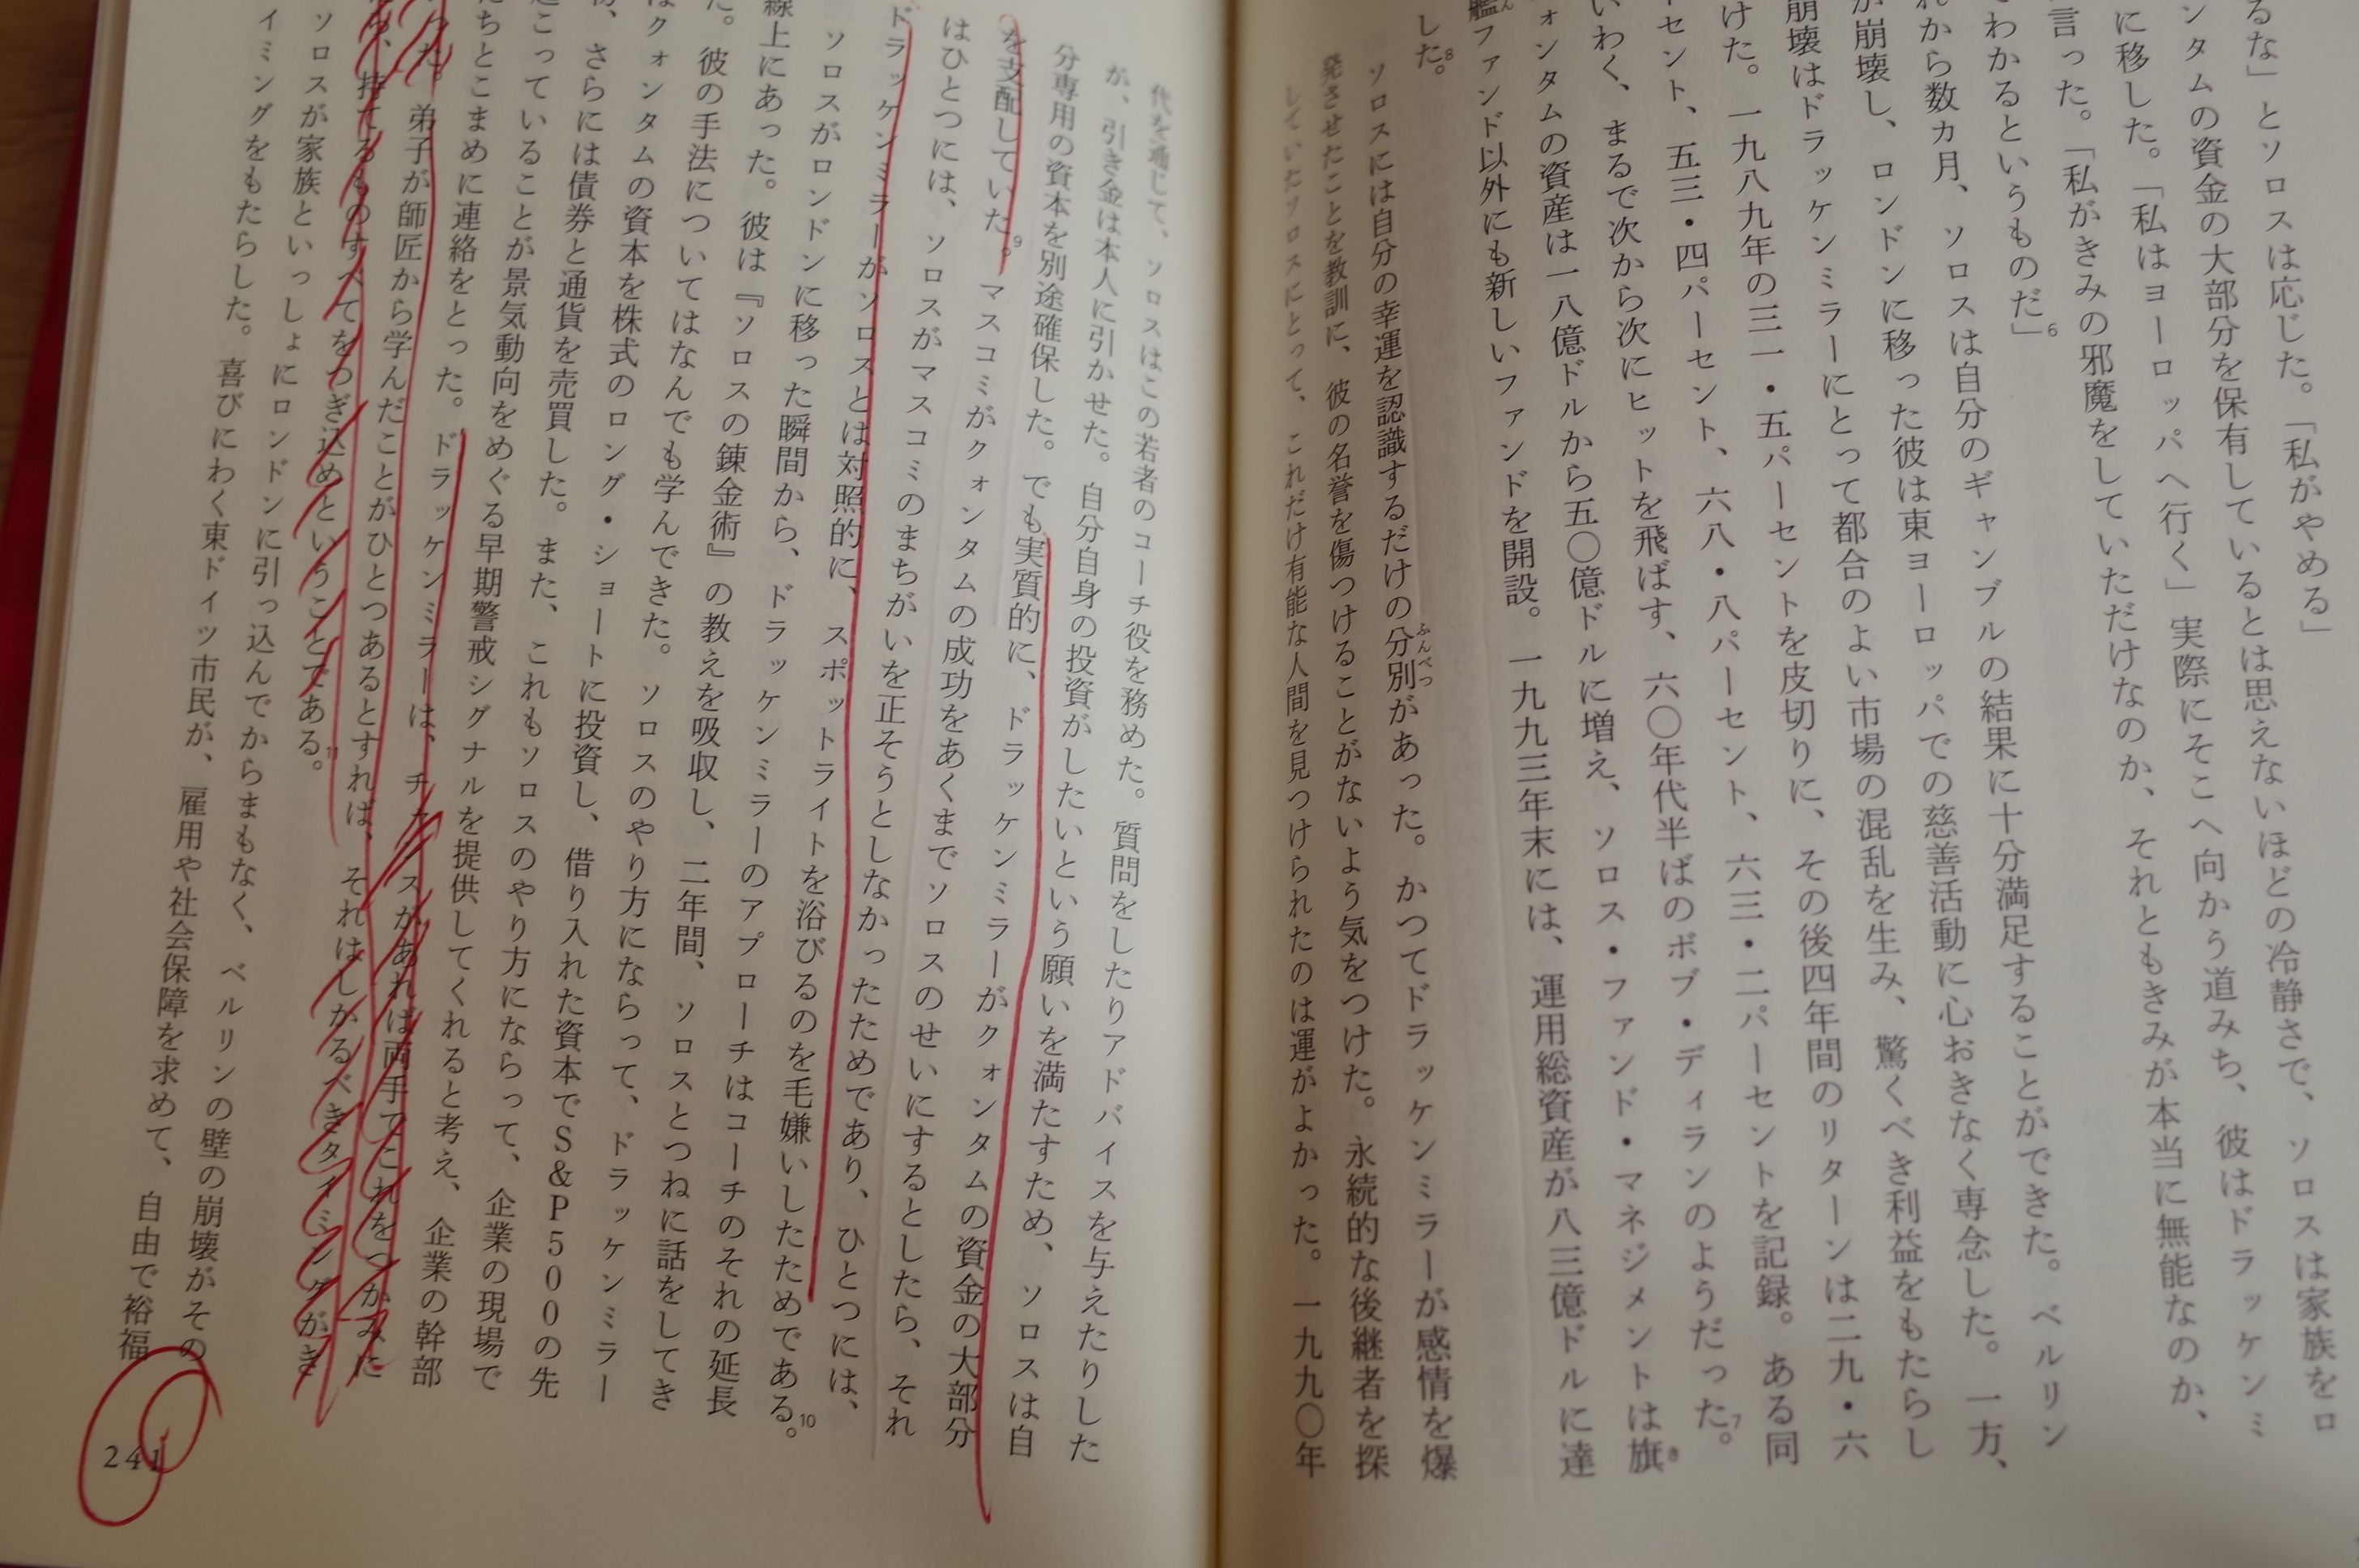 るな」とソロスは応じた。「私がやめる」
ンタムの資金の大部分を保有しているとは思えないほどの冷静さで、ソロスは家族をロ
に移した。「私はヨーロッパへ行く」実際にそこへ向かう道みち、彼はドラッケンミ
言った。「私がきみの邪魔をしていただけなのか、それともきみが本当に無能なのか、
でわかるというものだ」6
れから数ヵ月、ソロスは自分のギャンブルの結果に十分満足することができた。ベルリン
が崩壊し、ロンドンに移った彼は東ヨーロッパでの慈善活動に心おきなく専念した。一方、
崩壊はドラッケンミラーにとって都合のよい市場の混乱を生み、驚くべき利益をもたらし
けた。一九八九年の三一・五パーセントを皮切りに、その後四年間のリターンは二九・六
ーセント、五三・四パーセント、六八・八パーセント、六三・二パーセントを記録。ある同
いわく、まるで次から次にヒットを飛ばす、六〇年代半ばのボブ・ディランのようだった。7
ォンタムの資産は一八億ドルから五〇億ドルに増え、ソロス・ファンド・マネジメントは旗
艦ファンド以外にも新しいファンドを開設。一九九三年末には、運用総資産が八三億ドルに達
した。8
ソロスには自分の幸運を認識するだけの分別があった。かつてドラッケンミラーが感情を爆
発させたことを教訓に、彼の名誉を傷つけることがないよう気をつけた。永続的な後継者を探
していたソロスにとって、これだけ有能な人間を見つけられたのは運がよかった。一九九〇年
代を通じて、ソロスはこの若者のコーチ役を務めた。質問をしたりアドバイスを与えたりした
が、引き金は本人に引かせた。自分自身の投資がしたいという願いを満たすため、ソロスは自
分専用の資本を別途確保した。でも実質的に、ドラッケンミラーがクォンタムの資金の大部分
を支配していた。9マスコミがクォンタムの成功をあくまでソロスのせいにするとしたら、それ
はひとつには、ソロスがマスコミのまちがいを正そうとしなかったためであり、ひとつには、
ドラッケンミラーがソロスとは対照的に、スポットライトを浴びるのを毛嫌いしたためである。10
ソロスがロンドンに移った瞬間から、ドラッケンミラーのアプローチはコーチのそれの延長
線上にあった。彼は『ソロスの錬金術』の教えを吸収し、二年間、ソロスとつねに話をしてき
た。彼の手法についてはなんでも学んできた。ソロスのやり方にならって、ドラッケンミラー
はクォンタムの資本を株式のロング・ショートに投資し、借り入れた資本でS&P500の先
物、さらには債券と通貨を売買した。また、これもソロスのやり方にならって、企業の現場で
起こっていることが景気動向をめぐる早期警戒シグナルを提供してくれると考え、企業の幹部
たちとこまめに連絡をとった。ドラッケンミラーは、チャンスがあれば両手でこれをつかみに
いった。弟子が師匠から学んだことがひとつあるとすれば、それはしかるべきタイミングがき
たら、持てるもののすべてをつぎ込めということである。11
ソロスが家族といっしょにロンドンに引っ込んでからまもなく、ベルリンの壁の崩壊がその
イミングをもたらした。喜びにわく東ドイツ市民が、雇用や社会保障を求めて、自由で裕福
241